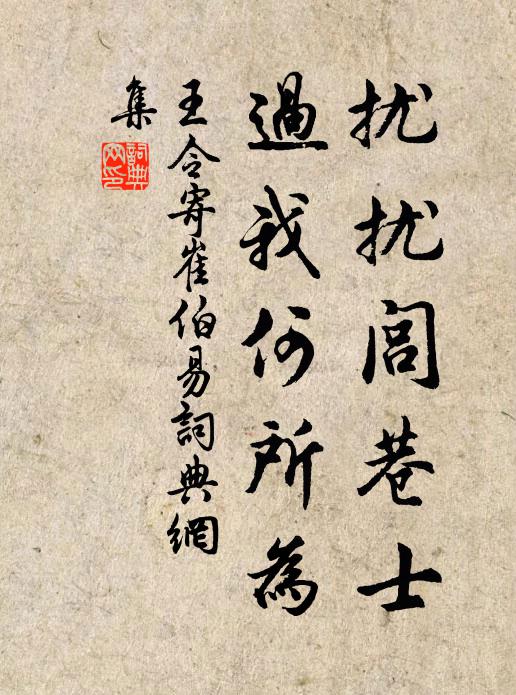 扰扰闾巷士
過我何所為
王令寄崔伯易詞典網
集
詞典網印